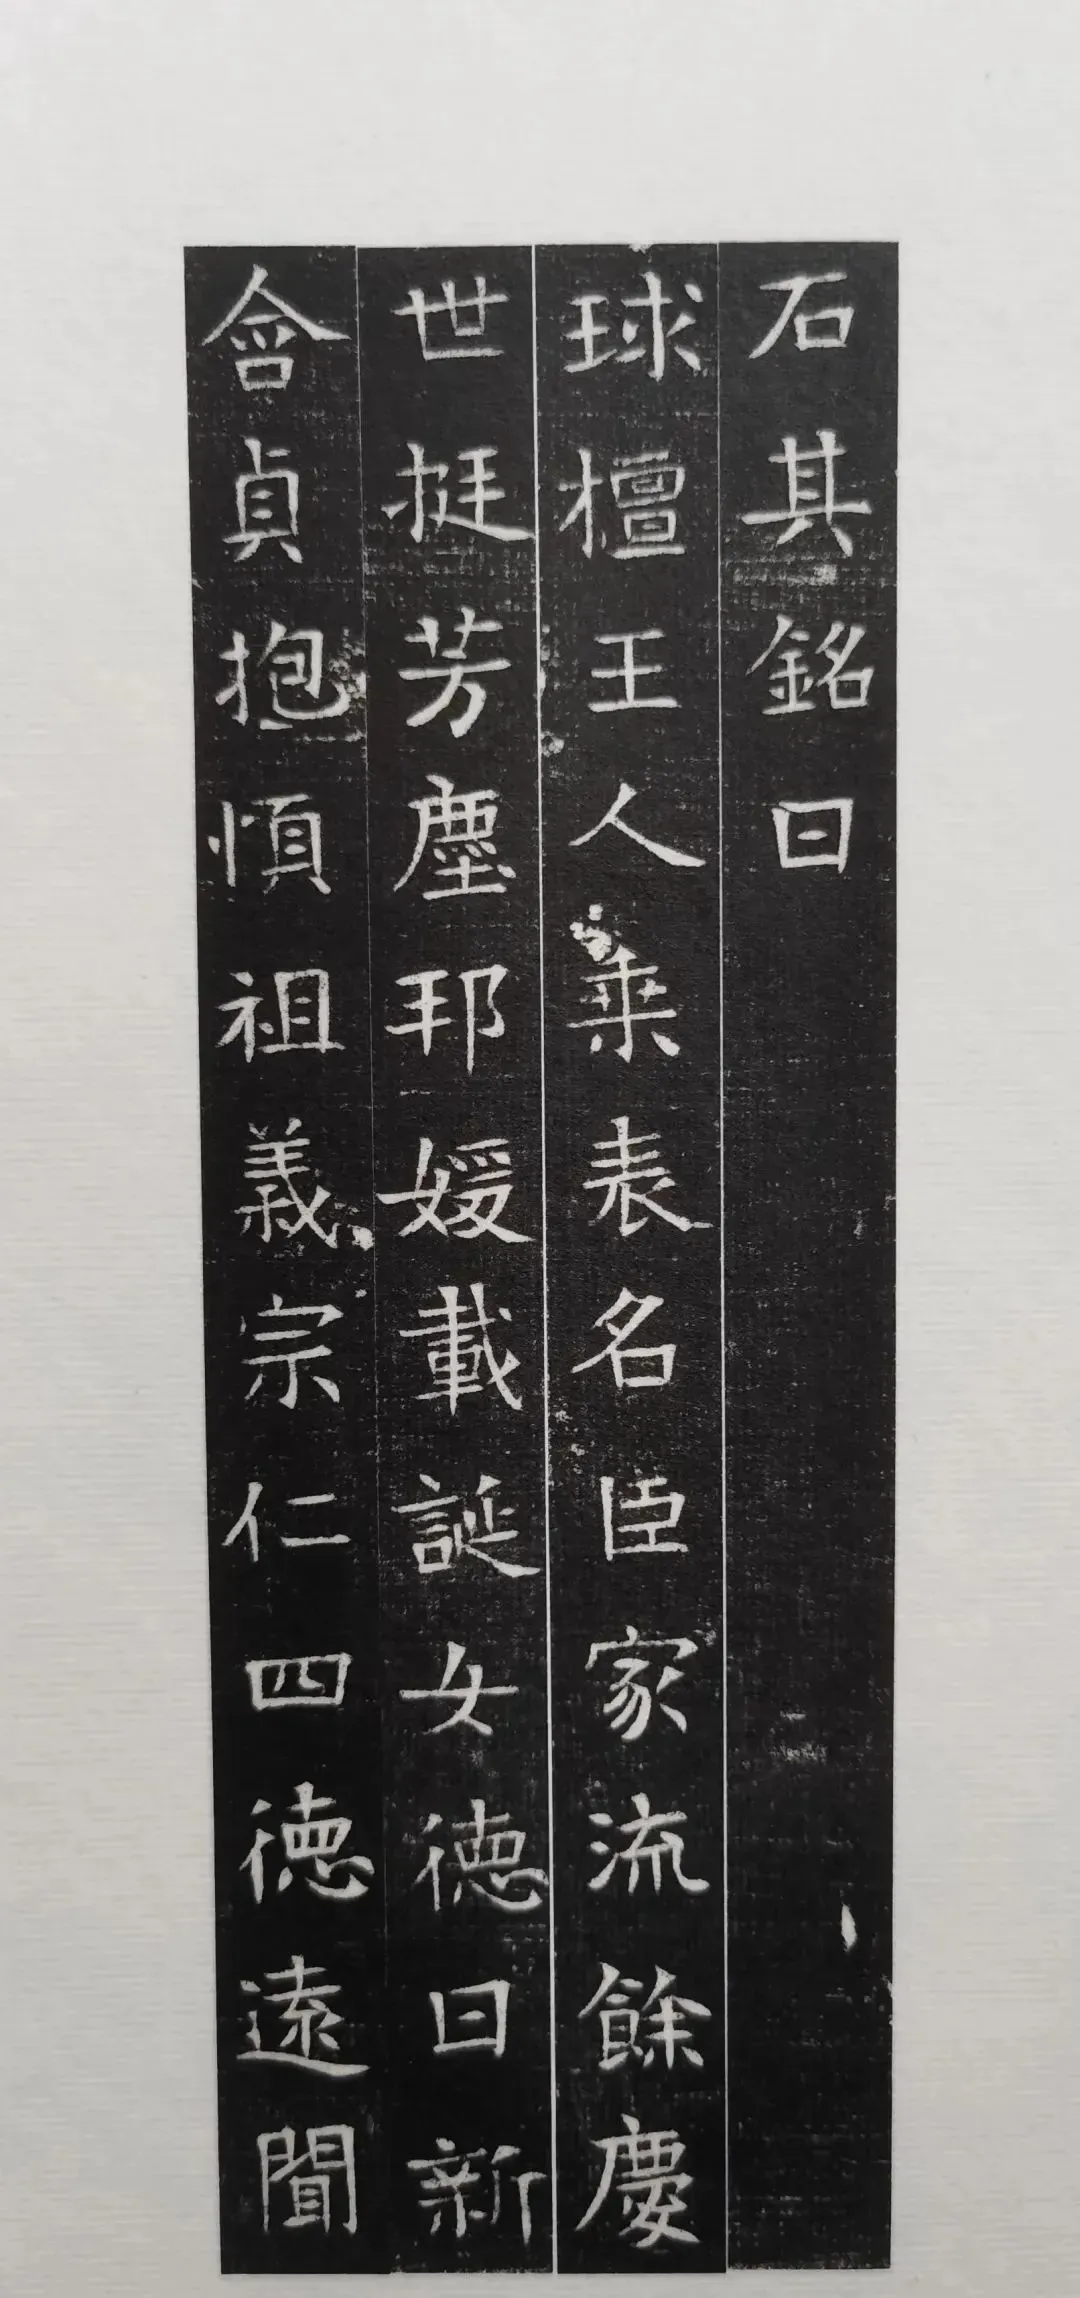 石其銘曰
球檀王人乘表名臣家流餘慶
世挺芳塵邦媛載誕女德日新
含貞抱慎祖義宗仁四德遠聞